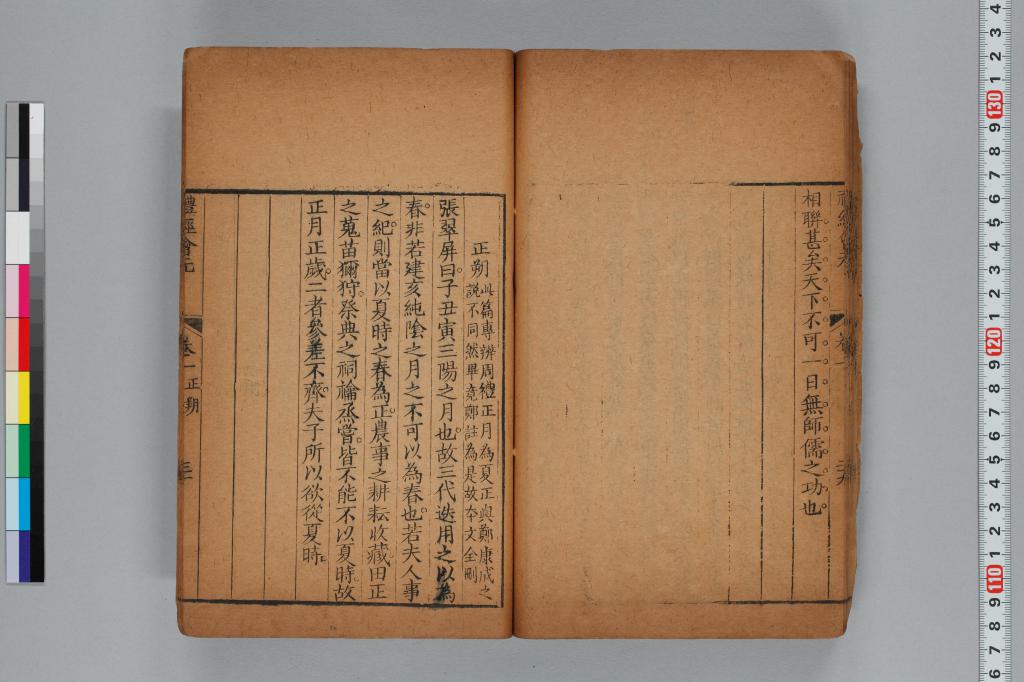 相聯甚矣天下不可一日無師儒之功也
正朔
此篇專辨周禮正月為夏正與鄭康成之
說不同然畢竟鄭註為是故本文全刪
張翠屏曰子丑寅三陽之月也故三代迭用之以為
春非若建亥純陰之月之不可以為春也若夫人事
之紀則當以夏時之春為正農事之耕耘收藏田正
之蒐苗獮狩祭典之祠禴烝嘗皆不能不以夏時故
正月正歲二者參差不齊夫子所以欲從夏時
禮經會元
卷一 正朔
三
4
3
2
1
130
9
8
7
6
5
4
3
2
1
120
9
8
7
6
5
4
3
2
1
110
9
8
7
6